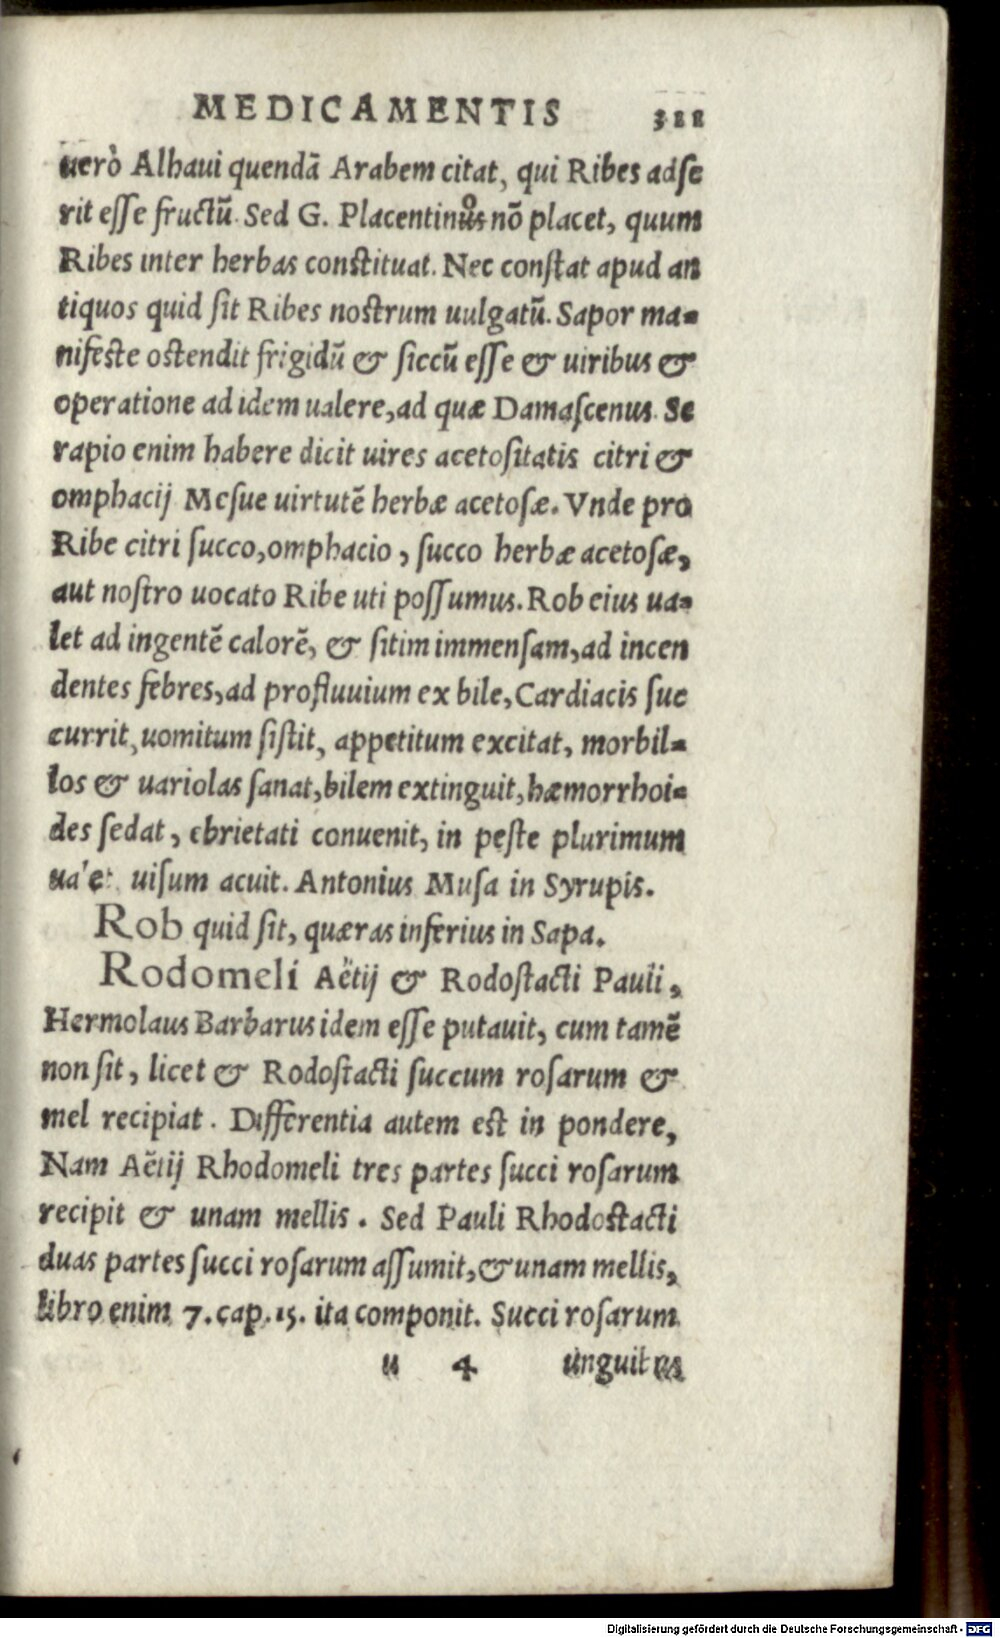 MEDICAMENTIS 311
uerò Alhaui quendā Arabem citat, qui Ribes adse
rit esse fructū. Sed G. Placentino nō placet, quum
Ribes inter herbas constituat. Nec constat apud an
tiquos quid sit Ribes nostrum uulgatū. Sapor ma-
nifeste ostendit frigidū & siccū esse & uiribus &
operatione ad idem ualere, ad quæ Damascenus. Se
rapio enim habere dicit uires acetositatis citri &
omphacij Mesue uirtutē herbæ acetosæ. Vnde pro
Ribe citri succo, omphacio, succo herbæ acetosæ,
aut nostro uocato Ribe uti possumus. Rob eius ua-
let ad ingentē calorē, & sitim immensam, ad incen
dentes febres, ad profluuium ex bile, Cardiacis suc
currit, uomitum sistit, appetitum excitat, morbil-
los & uariolas sanat, bilem extinguit, hæmorrhoi-
des sedat, ebrietati conuenit, in peste plurimum
ualet uisum acuit. Antonius Musa in Syrupis.
Rob quid sit, quæras inferius in Sapa.
Rodomeli Aëtij & Rodostacti Pauli,
Hermolaus Barbarus idem esse putauit, cum tamē
non sit, licet & Rodostacti succum rosarum &
mel recipiat. Differentia autem est in pondere,
Nam Aëtij Rhodomeli tres partes succi rosarum
recipit & unam mellis. Sed Pauli Rhodostacti
duas partes succi rosarum assumit, & unam mellis,
libro enim 7. cap. 15. ita componit. Succi rosarum
u 4 unguibus
Digitalisierung gefördert durch die Deutsche Forschungsgemeinschaft - DFG